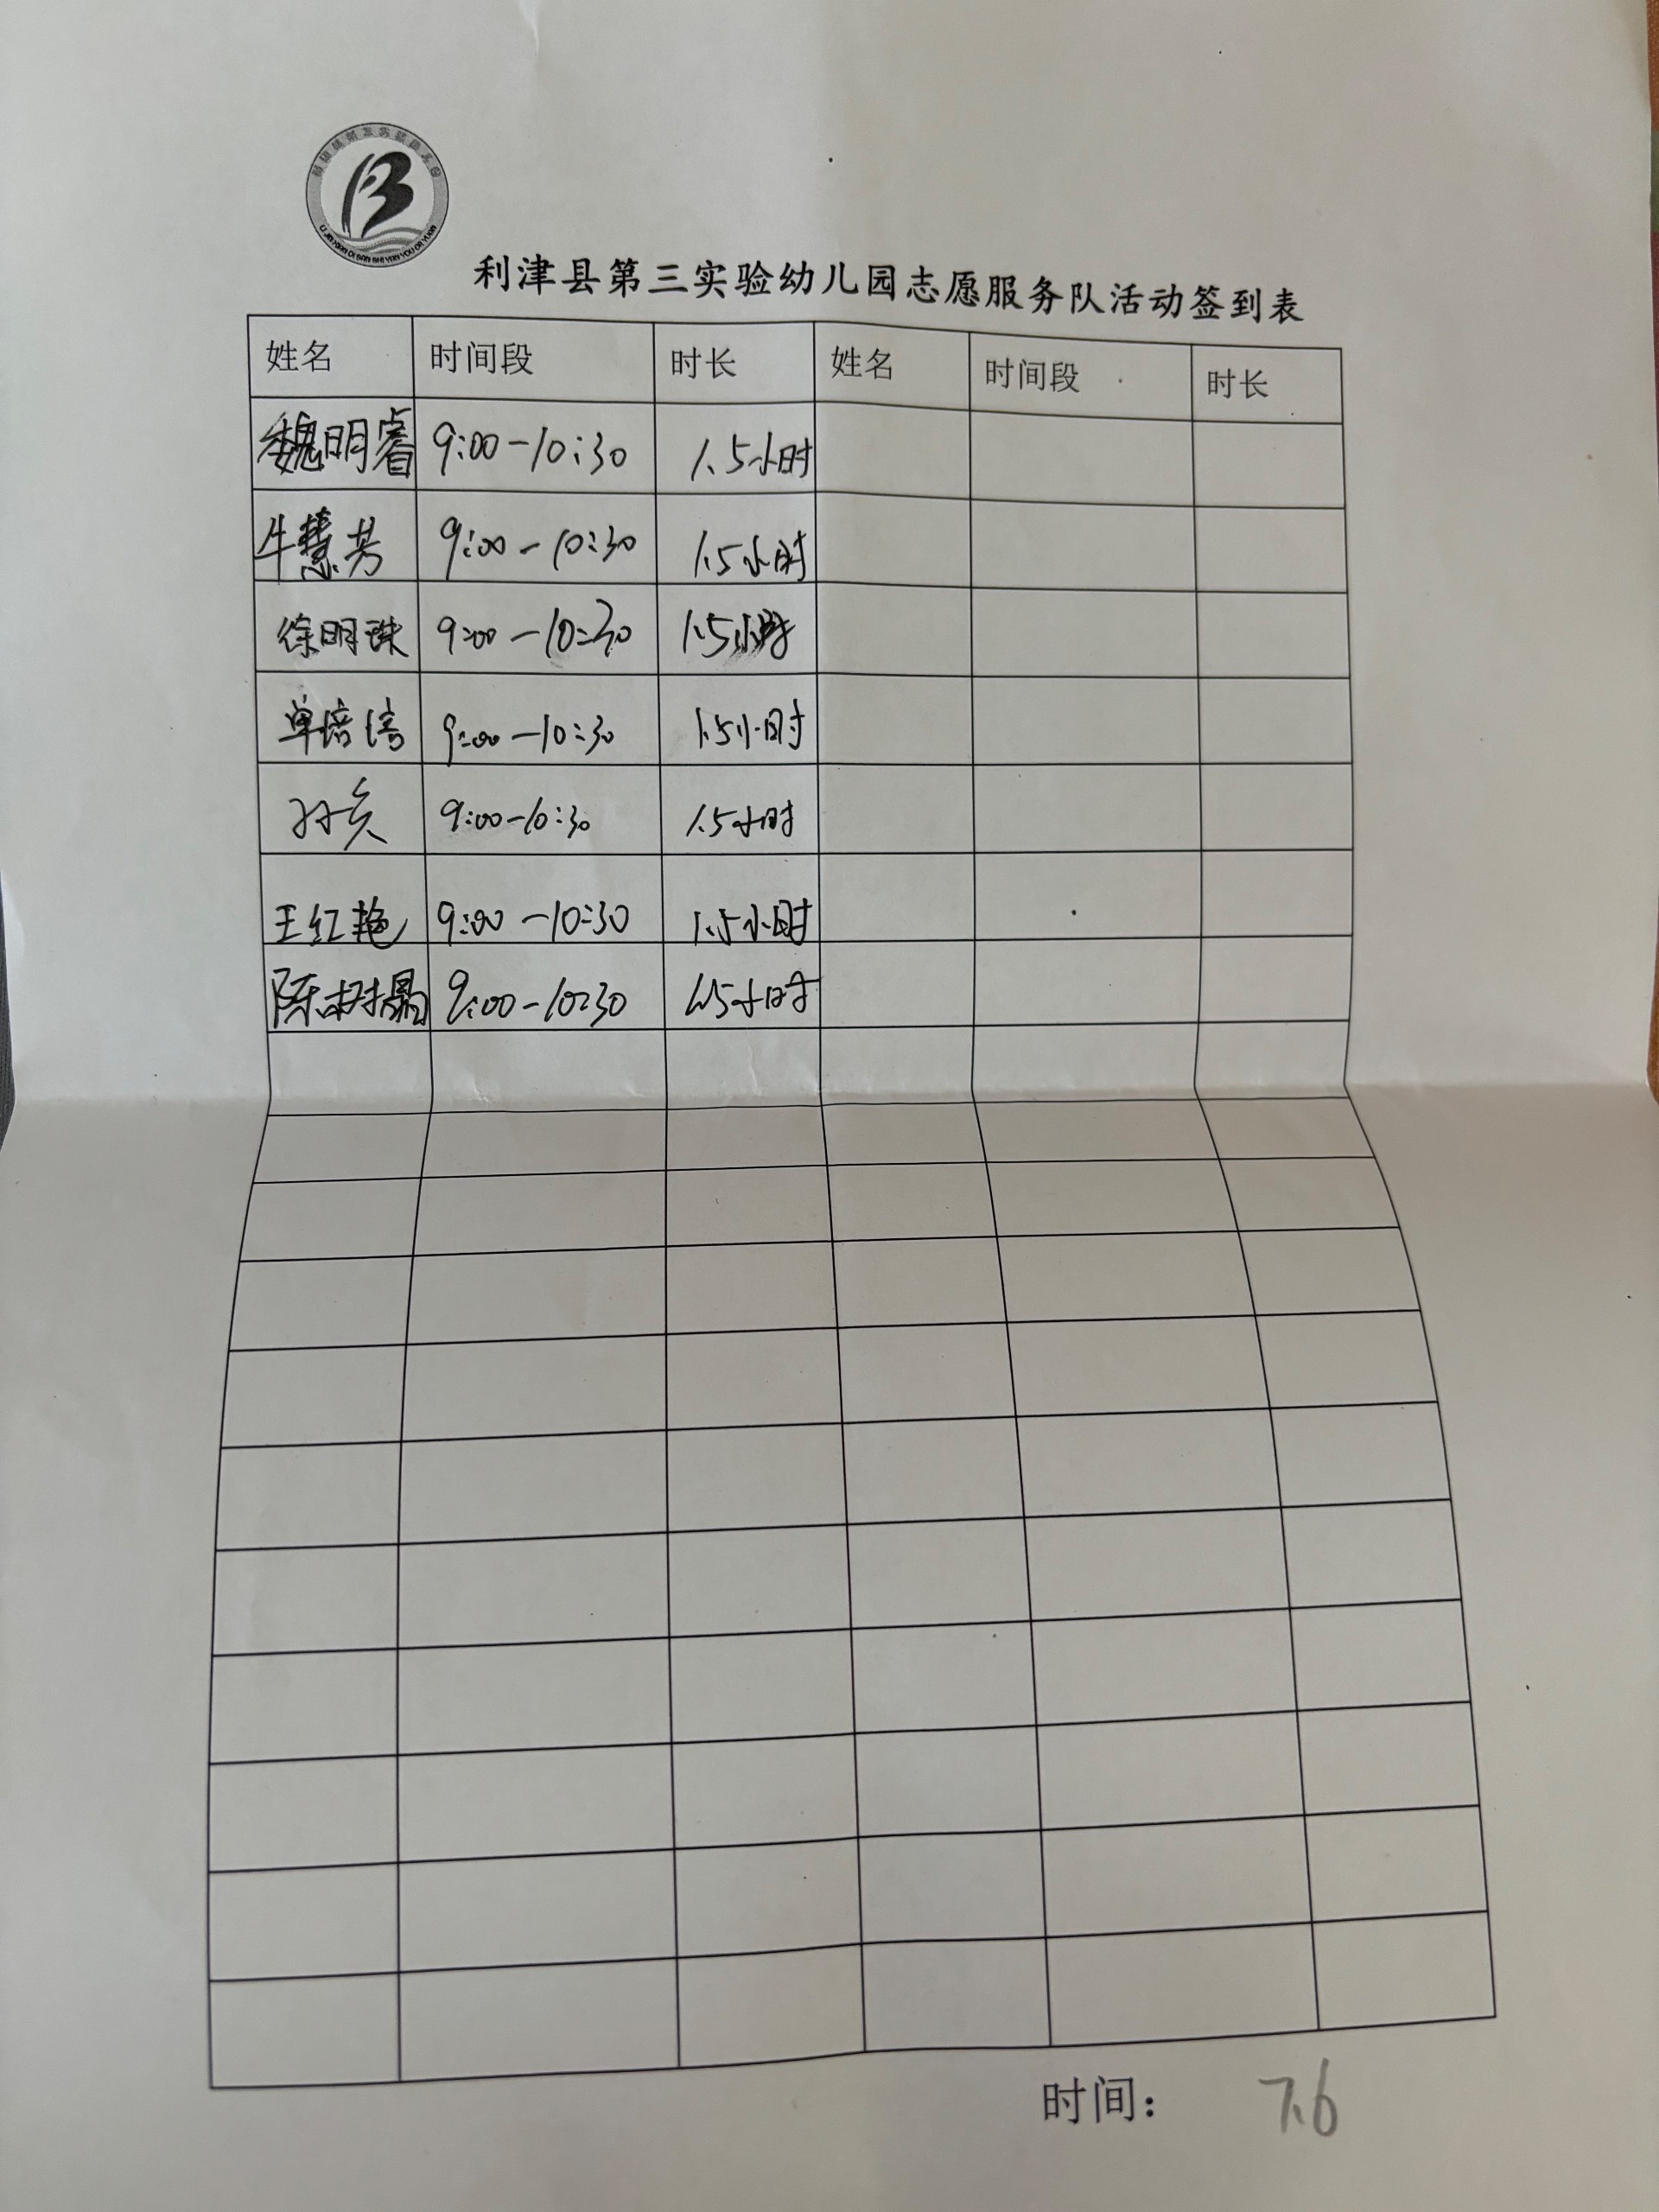 利津县第三实验幼儿园
LI JIN XIAN DI SAN SHI YAN YOU ER YUAN
利津县第三实验幼儿园志愿服务队活动签到表
姓名 时间段 时长 姓名 时间段 时长
魏明睿 9:00-10:30 1.5小时
牛慧芳 9:00-10:30 1.5小时
徐明珠 9:00-10:30 1.5小时
单培倩 9:00-10:30 1.5小时
9:00-10:30 1.5小时
王红艳 9:00-10:30 1.5小时
陈树晶 9:00-10:30 1.5小时
时间： 7.6